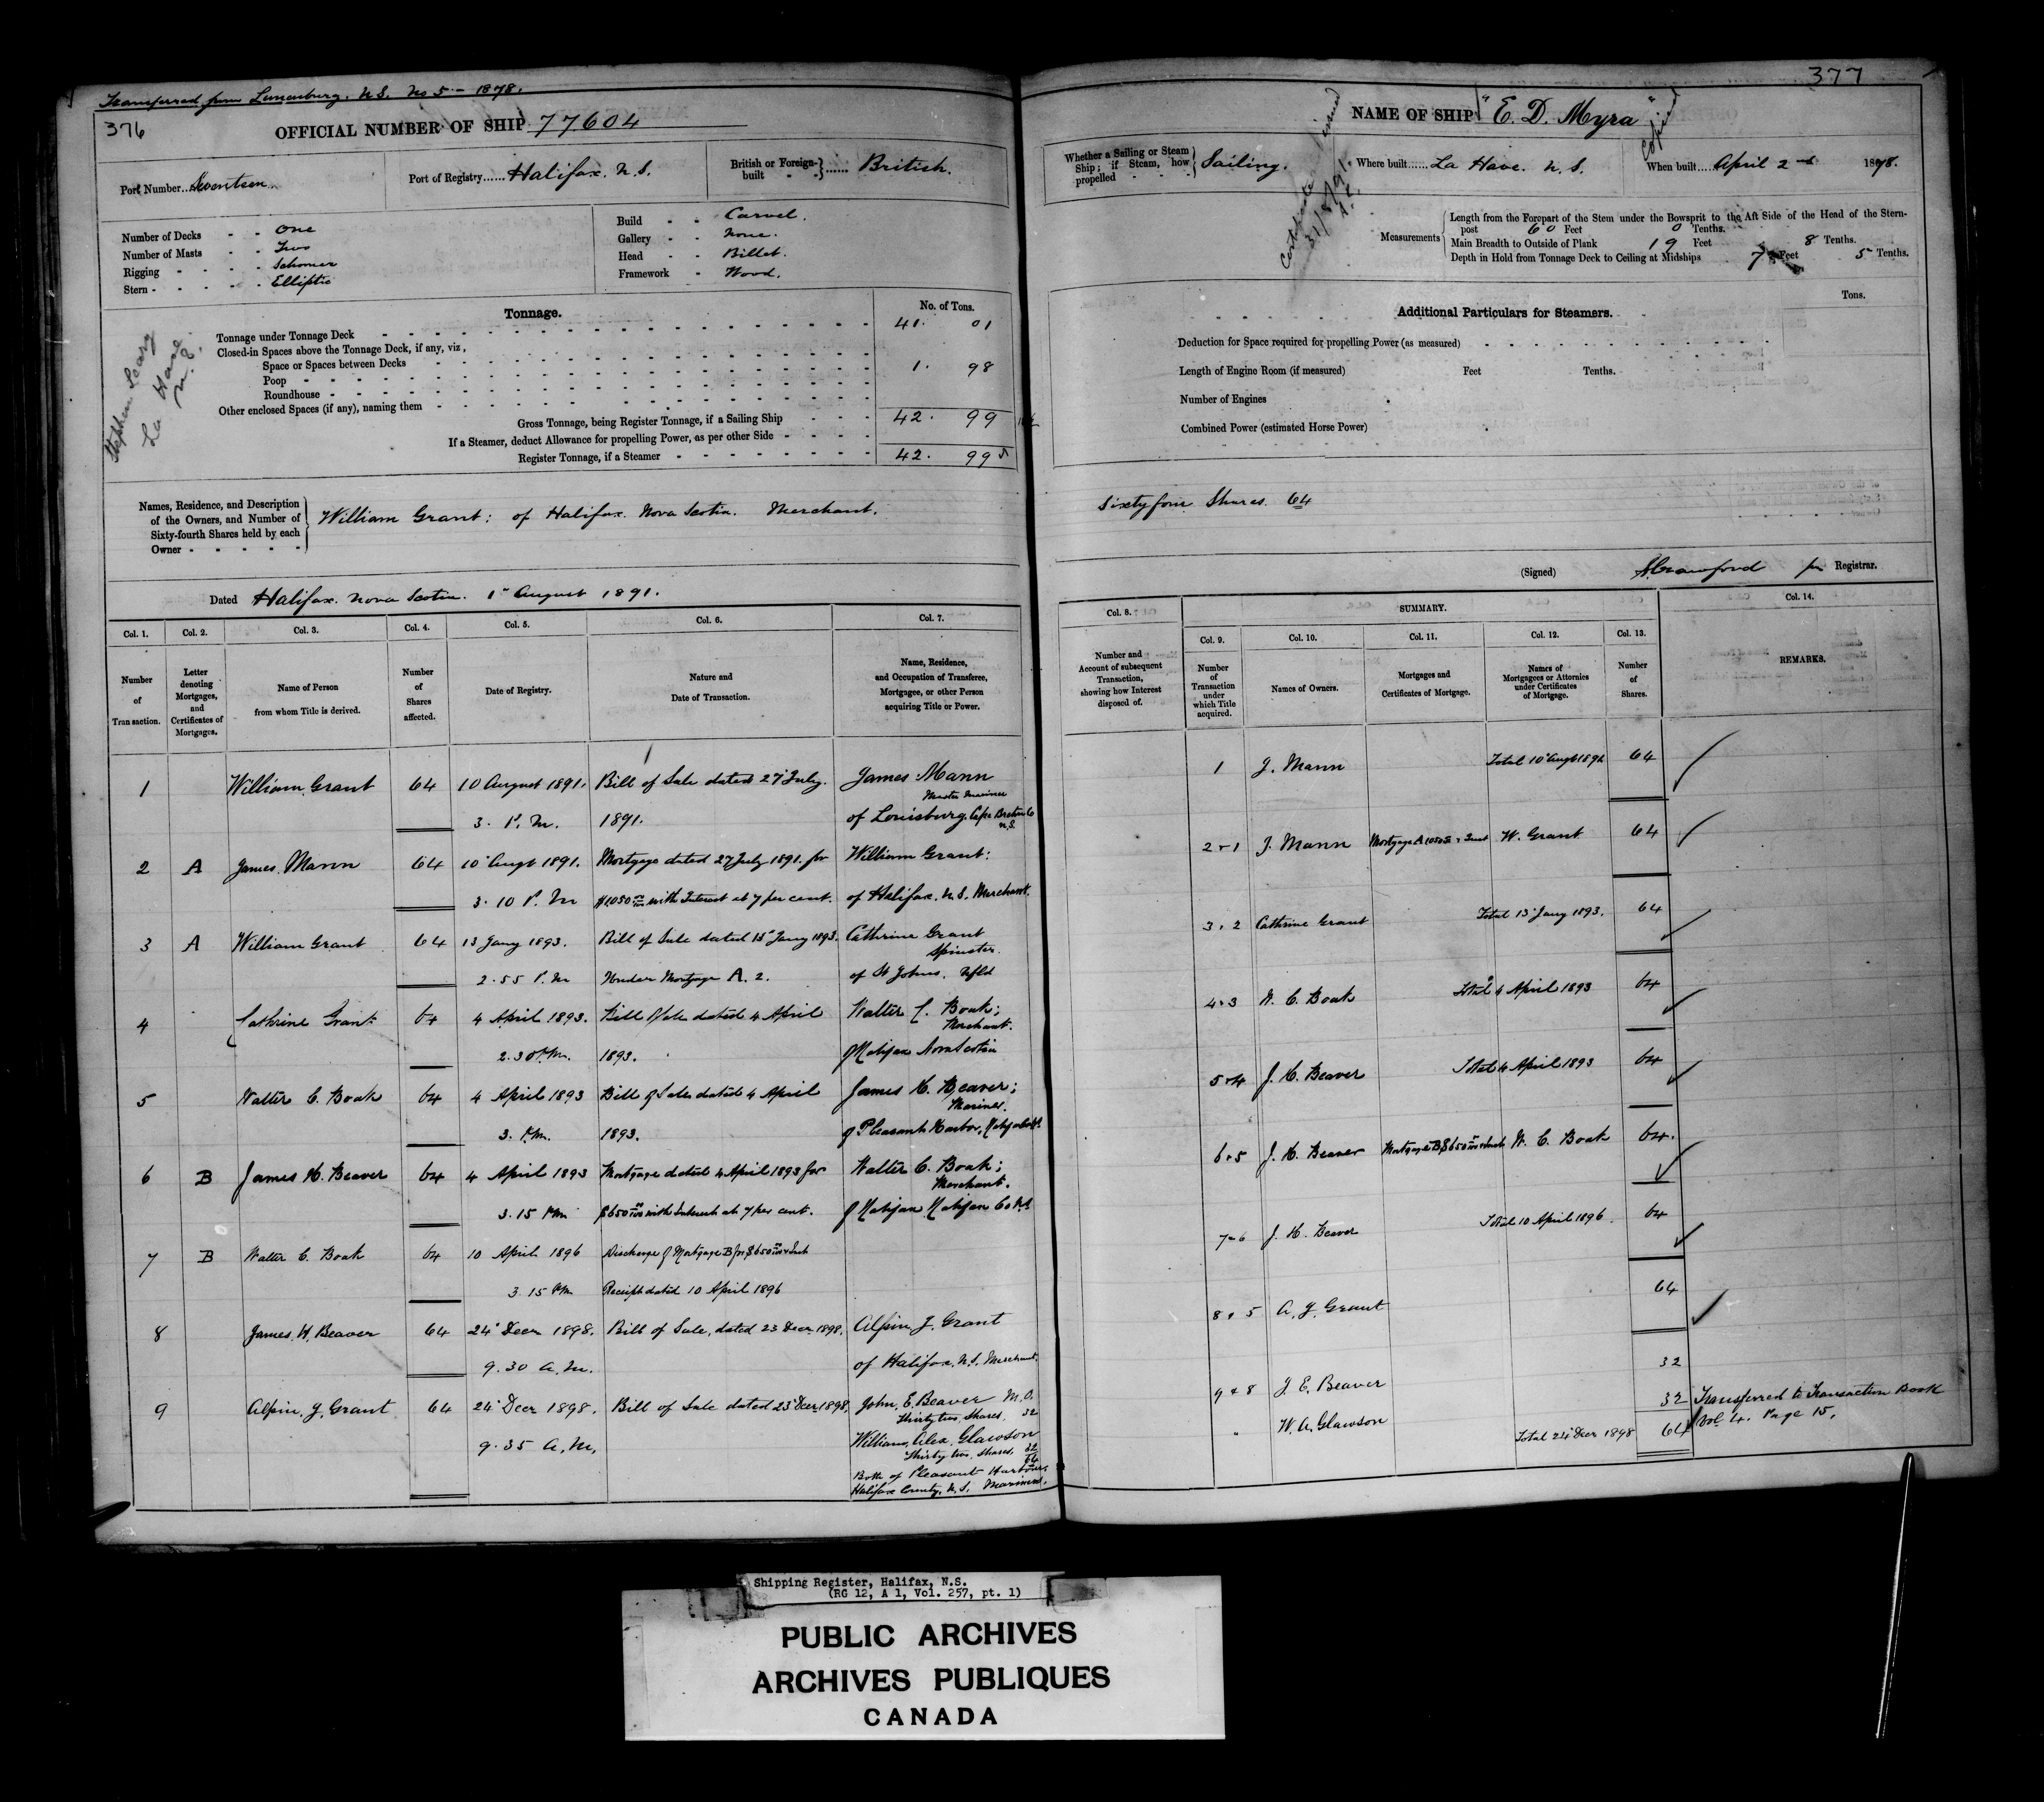 Transferred from Lunenburg. N.S. No 5 - 1878.
376
OFFICIAL NUMBER OF SHIP 77604
Port Number...Seventeen.
Port of Registry......Halifax. N.S.
British or Foreign-built - - } ...... British.
Number of Decks - - One
Number of Masts - - Two
Rigging - - - - Schooner
Stern - - - - - Elliptic
Build - - Carvel.
Gallery - - None.
Head - - Billet.
Framework - Wood.
Stephen
La Have
Tonnage.
No. of Tons.
Tonnage under Tonnage Deck 41. 01
Closed-in Spaces above the Tonnage Deck, if any, viz,
Space or Spaces between Decks 1. 98
Poop
Roundhouse
Other enclosed Spaces (if any), naming them
Gross Tonnage, being Register Tonnage, if a Sailing Ship 42. 99
If a Steamer, deduct Allowance for propelling Power, as per other Side
Register Tonnage, if a Steamer 42. 99
Names, Residence, and Description of the Owners, and Number of Sixty-fourth Shares held by each Owner
William Grant: of Halifax. Nova Scotia. Merchant.
Dated Halifax. Nova Scotia. 1st August 1891.
Col. 1. Col. 2. Col. 3. Col. 4. Col. 5. Col. 6. Col. 7.
Number of Transaction.
Letter denoting Mortgages, and Certificates of Mortgages.
Name of Person from whom Title is derived.
Number of Shares affected.
Date of Registry.
Nature and Date of Transaction.
Name, Residence, and Occupation of Transferee, Mortgagee, or other Person acquiring Title or Power.
1 William Grant 64 10 August 1891. Bill of Sale dated 27 July. James Mann
Master Mariner
3. P.M. 1891. of Louisburg, Cape Breton Co N.S.
2 A James Mann 64 10 Augt 1891. Mortgage dated 27 July 1891. for William Grant:
3.10 P.M with Interest at 7 per cent. of Halifax. N.S. Merchant.
3 A William Grant 64 13 Jany 1893. Bill of Sale dated Jany 1893. Cathrine Grant
Spinster
2.55 P.M Under Mortgage A. 2. of St Johns, Nfld
4 Cathrine Grant 64 4 April 1893. Bill of Sale dated 4 April Walter C. Boak;
Merchant.
2.30 P.M. 1893. of Halifax Nova Scotia
5 Walter C. Boak 64 4 April 1893 Bill of Sale dated 4 April James H. Beaver;
Mariner.
3. P.M. 1893. of Pleasant Harbor,
6 B James H. Beaver 64 4 April 1893 Mortgage dated 4 April 1893 for Walter C. Boak;
Merchant.
3.15 P.M $650 with Interest at 7 per cent. of Halifax Halifax Co N.S
7 B Walter C. Boak 64 10 April 1896 Discharge of Mortgage B for $650 & Int
3.15 P.M Receipt dated 10 April 1896
8 James H. Beaver 64 24 Decr 1898. Bill of Sale, dated 23 Decr 1898. Alpin J. Grant
9.30 A.M. of Halifax, N.S. Merchant.
9 Alpin J. Grant 64 24 Decr 1898. Bill of Sale dated 23 Decr 1898. John E. Beaver M.O.
Thirty two shares, 32
9.35 A.M. William Alex. Glawson
Thirty two shares, 32
64
Both of Pleasant Harbour,
Halifax County, N.S. Mariners.
377
NAME OF SHIP "E. D. Myra"
Copied
Certificate issued
31/8/91.
Whether a Sailing or Steam Ship; if Steam, how propelled - - - } Sailing.
Where built......La Have. N.S.
When built.....April 2nd 1878.
Measurements
Length from the Forepart of the Stem under the Bowsprit to the Aft Side of the Head of the Stern-
post 60 Feet 0 Tenths.
Main Breadth to Outside of Plank 19 Feet 8 Tenths.
Depth in Hold from Tonnage Deck to Ceiling at Midships 7 Feet 5 Tenths.
Additional Particulars for Steamers.
Tons.
Deduction for Space required for propelling Power (as measured)
Length of Engine Room (if measured) Feet Tenths.
Number of Engines
Combined Power (estimated Horse Power)
Sixty four Shares. 64
(Signed) Crawford Registrar.
Col. 8. SUMMARY. Col. 14.
Col. 9. Col. 10. Col. 11. Col. 12. Col. 13.
Number and Account of subsequent Transaction, showing how Interest disposed of.
Number of Transaction under which Title acquired.
Names of Owners.
Mortgages and Certificates of Mortgage.
Names of Mortgagees or Attornies under Certificates of Mortgage.
Number of Shares.
REMARKS.
1 J. Mann Total 10 Augt 64
2 & 1 J. Mann Mortgage A W. Grant 64
3 & 2 Cathrine Grant Total 13 Jany 1893. 64
4 & 3 W. C. Boak Total 4 April 1893 64
5 & 4 J. H. Beaver Total 4 April 1893 64
6 & 5 J. H. Beaver Mortgage B $650 & Int W. C. Boak 64
7 & 6 J. H. Beaver Total 10 April 1896. 64
8 & 5 A. J. Grant 64
9 & 8 J. E. Beaver 32
" W. A. Glawson 32 Transferred to Transaction Book
Total 24 Decr 1898 64 Vol 4. Page 15.
Shipping Register, Halifax, N.S.
(RG 12, A 1, Vol. 257, pt. 1)
PUBLIC ARCHIVES
ARCHIVES PUBLIQUES
CANADA